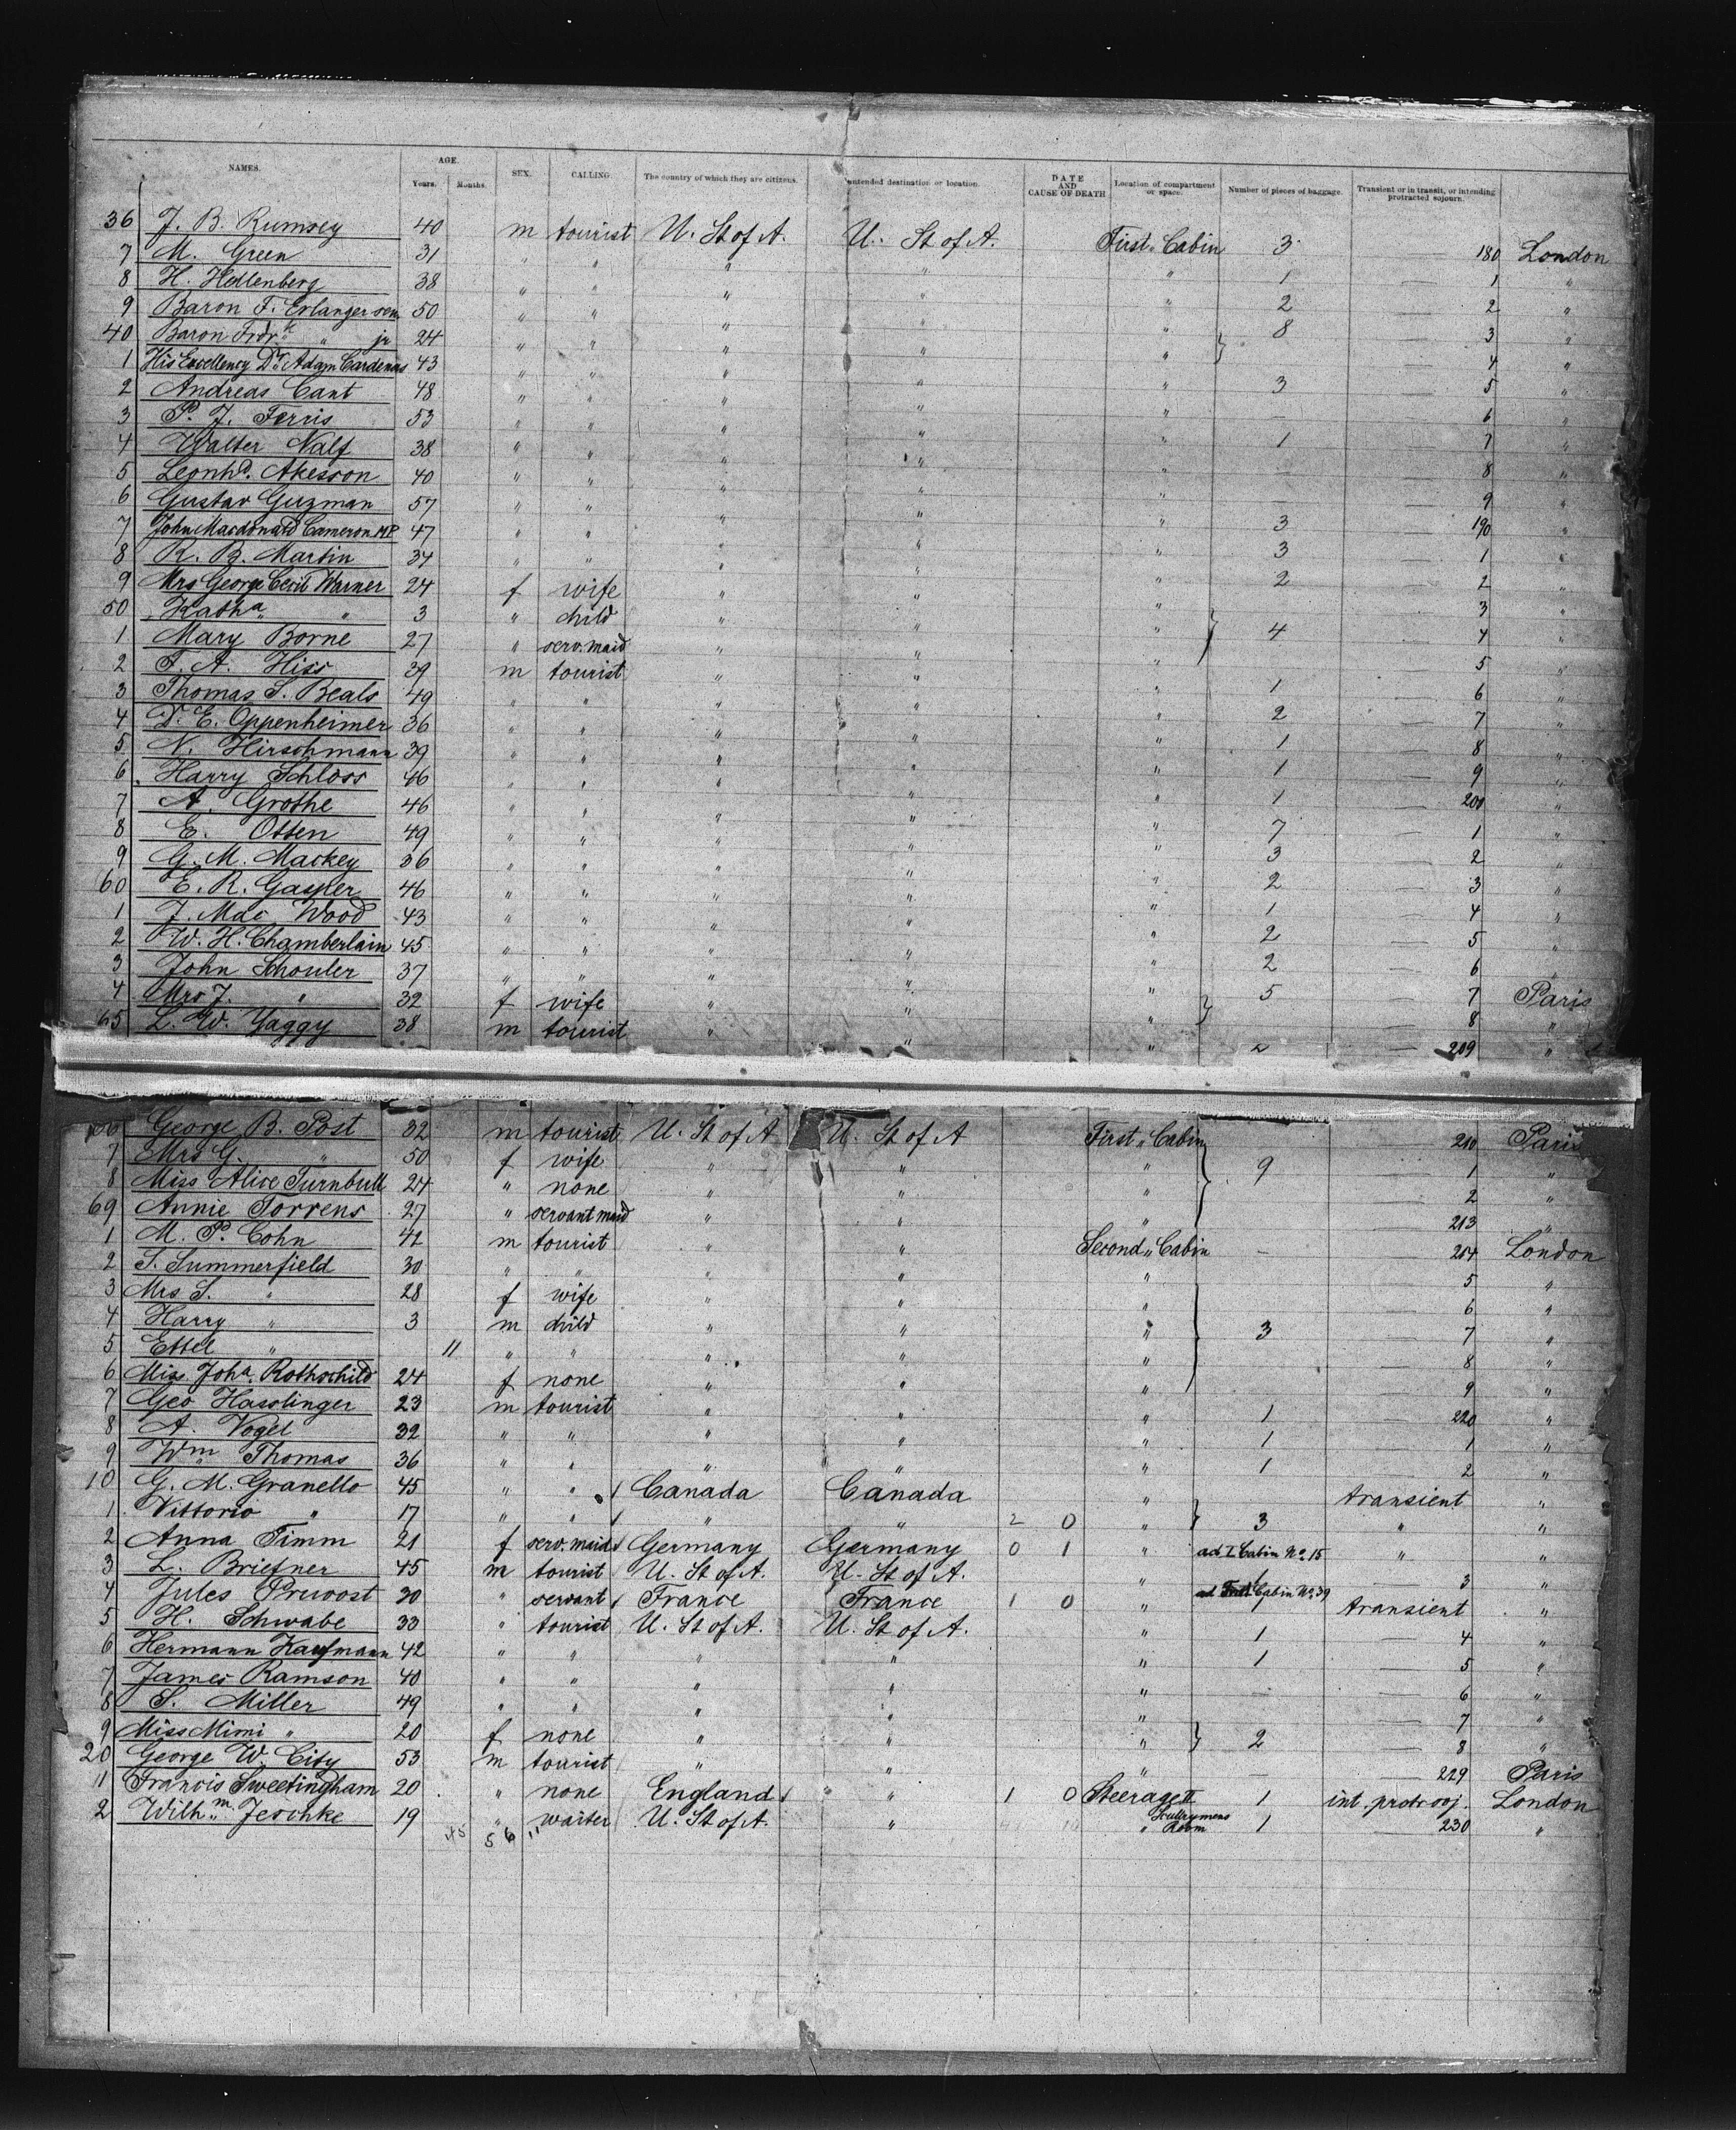 NAMES. AGE. Years. Months. SEX. CALLING. The country of which they are citizens. Intended destination or location. DATE AND CAUSE OF DEATH Location of compartment or space. Number of pieces of baggage. Transient or in transit, or intending protracted sojourn.
36 J. B. Rumsey 40 m tourist U. St of A. U. St of A. First Cabin 3 — 180 London
7 M. Green 31 " " " " " 1 — 1 "
8 H. Hellenberg 38 " " " " " 2 — 2 "
9 Baron F. Erlanger sen 50 " " " " " 8 — 3 "
40 Baron Frdr " jr 24 " " " " " — 4 "
1 His Excellency Dr. Adam Cardenas 43 " " " " " 3 — 5 "
2 Andreas Cant 48 " " " " " — — 6 "
3 P. J. Ferris 53 " " " " " 1 — 7 "
4 Walter Nalf 38 " " " " " — — 8 "
5 Leonhd. Akesson 40 " " " " " — — 9 "
6 Gustav Guzman 57 " " " " " 3 — 190 "
7 John Macdonald Cameron MP 47 " " " " " 3 — 1 "
8 R. B. Martin 34 " " " " " 2 — 2 "
9 Mrs George Cecil Warner 24 f wife " " " — 3 "
50 Katha " " 3 " child " " " 4 — 4 "
1 Mary Borne 27 " serv. maid " " " — 5 "
2 F. A. Hiss 39 m tourist " " " 1 — 6 "
3 Thomas S. Beals 49 " " " " " 2 — 7 "
4 Dr. E. Oppenheimer 36 " " " " " 1 — 8 "
5 N. Hirschmann 39 " " " " " 1 — 9 "
6 Harry Schloss 46 " " " " " 1 — 200 "
7 A. Grothe 46 " " " " " 7 — 1 "
8 E. Otten 49 " " " " " 3 — 2 "
9 G. M. Mackey 36 " " " " " 2 — 3 "
60 E. R. Gasper 46 " " " " " 1 — 4 "
1 J. Mac Wood 43 " " " " " 2 — 5 "
2 W. H. Chamberlain 45 " " " " " 2 — 6 "
3 John Schouler 37 " " " " " 5 — 7 Paris
4 Mrs J. " 32 f wife " " " — 8 "
65 L. W. Yaggy 38 m tourist " " " 2 — 209 "
George B. Post 32 m tourist U. St of A U. St of A First " Cabin — 210 Paris
7 Mrs G. " 50 f wife " " " 9 — 1 "
8 Miss Alice Turnbull 24 " none " " " — 2 "
69 Annie Torrens 27 " servant maid " " " — 213 "
1 M. P. Cohn 42 m tourist " " Second " Cabin — — 214 London
2 S. Summerfield 30 " " " " " — 5 "
3 Mrs S. " 28 f wife " " " — 6 "
4 Harry " 3 m child " " " 3 — 7 "
5 Ettel " 11 " " " " " — 8 "
6 Miss Joha. Rothschild 24 f none " " " — 9 "
7 Geo Hasslinger 23 m tourist " " " 1 — 220 "
8 A. Vogel 32 " " " " " 1 — 1 "
9 Wm Thomas 36 " " " " " 1 — 2 "
10 G. M. Granello 45 " " Canada Canada " transient "
1 Vittorio " 17 " " " " 2 0 " 3 " "
2 Anna Timm 21 f serv. maid Germany Germany 0 1 " ad I. Cabin No. 15 " "
3 L. Briefner 45 m tourist U. St of A. U. St of A. " 1 — 3 "
4 Jules Pruvost 30 " servant France France 1 0 " Cabin No. 39 transient "
5 H. Schwabe 33 " tourist U. St of A. U. St of A. " 1 — 4 "
6 Hermann Kaufmann 42 " " " " " 1 — 5 "
7 James Ramson 40 " " " " " — — 6 "
8 S. Miller 49 " " " " " — 7 "
9 Miss Mimi " 20 f none " " " 2 — 8 "
20 George W. City 53 m tourist " " " — — 229 Paris
11 Francis Sweetingham 20 " none England " 1 0 Steerage II 1 int. protr. soj. London
2 Wilhm. Jeschke 19 " waiter U. St of A. " " Room 1 — 230 "
45 56